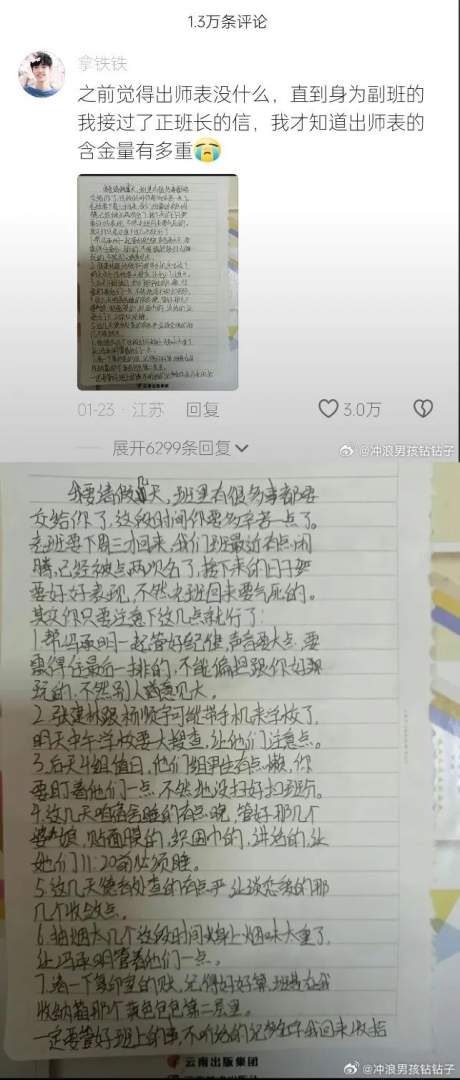 1.3万条评论
拿铁铁
之前觉得出师表没什么，直到身为副班的
我接过了正班长的信，我才知道出师表的
含金量有多重😭
01-23 · 江苏 回复
3.0万
展开6299条回复
@冲浪男孩钻钻子
我要请假几天，班里有很多事都要
交给你了，这段时间你要多辛苦一点了。
老班要下周三才回来，我们班最近有点闹
腾，已经被点两次名了，接下来的日子要
要好好表现，不然老班回来要气死的。
其次你只要注意下这几点就行了：
1.帮冯承明一起管好纪律，声音要大点，要
震得住最后一排的，不能偏袒跟你好跟
玩的，不然别人意见大。
2.张建林跟杨顺宇可能带手机来学校了，
明天中午学校要大搜查，让他们注意点。
3.后天4组值日，他们组男生有点懒，你
要盯着他们一点，不然地没扫好扣班分。
4.这几天咱宿舍睡的有点晚，管好那几个
婆娘，贴面膜的，织围巾的，讲话的，让
她们11:20前必须睡。
5.这几天德育处查的有点严，让谈恋爱的那
几个收敛点。
6.抽烟太几个这段时间身上烟味太重了，
让冯承明管着他们一点。
7.清一下复印室的账，记得好好算，班费在我
收纳箱那个黄色包包第二层里。
一定要管好班上的事，不听话的记名字我回来收拾
云南出版集团
@冲浪男孩钻钻子